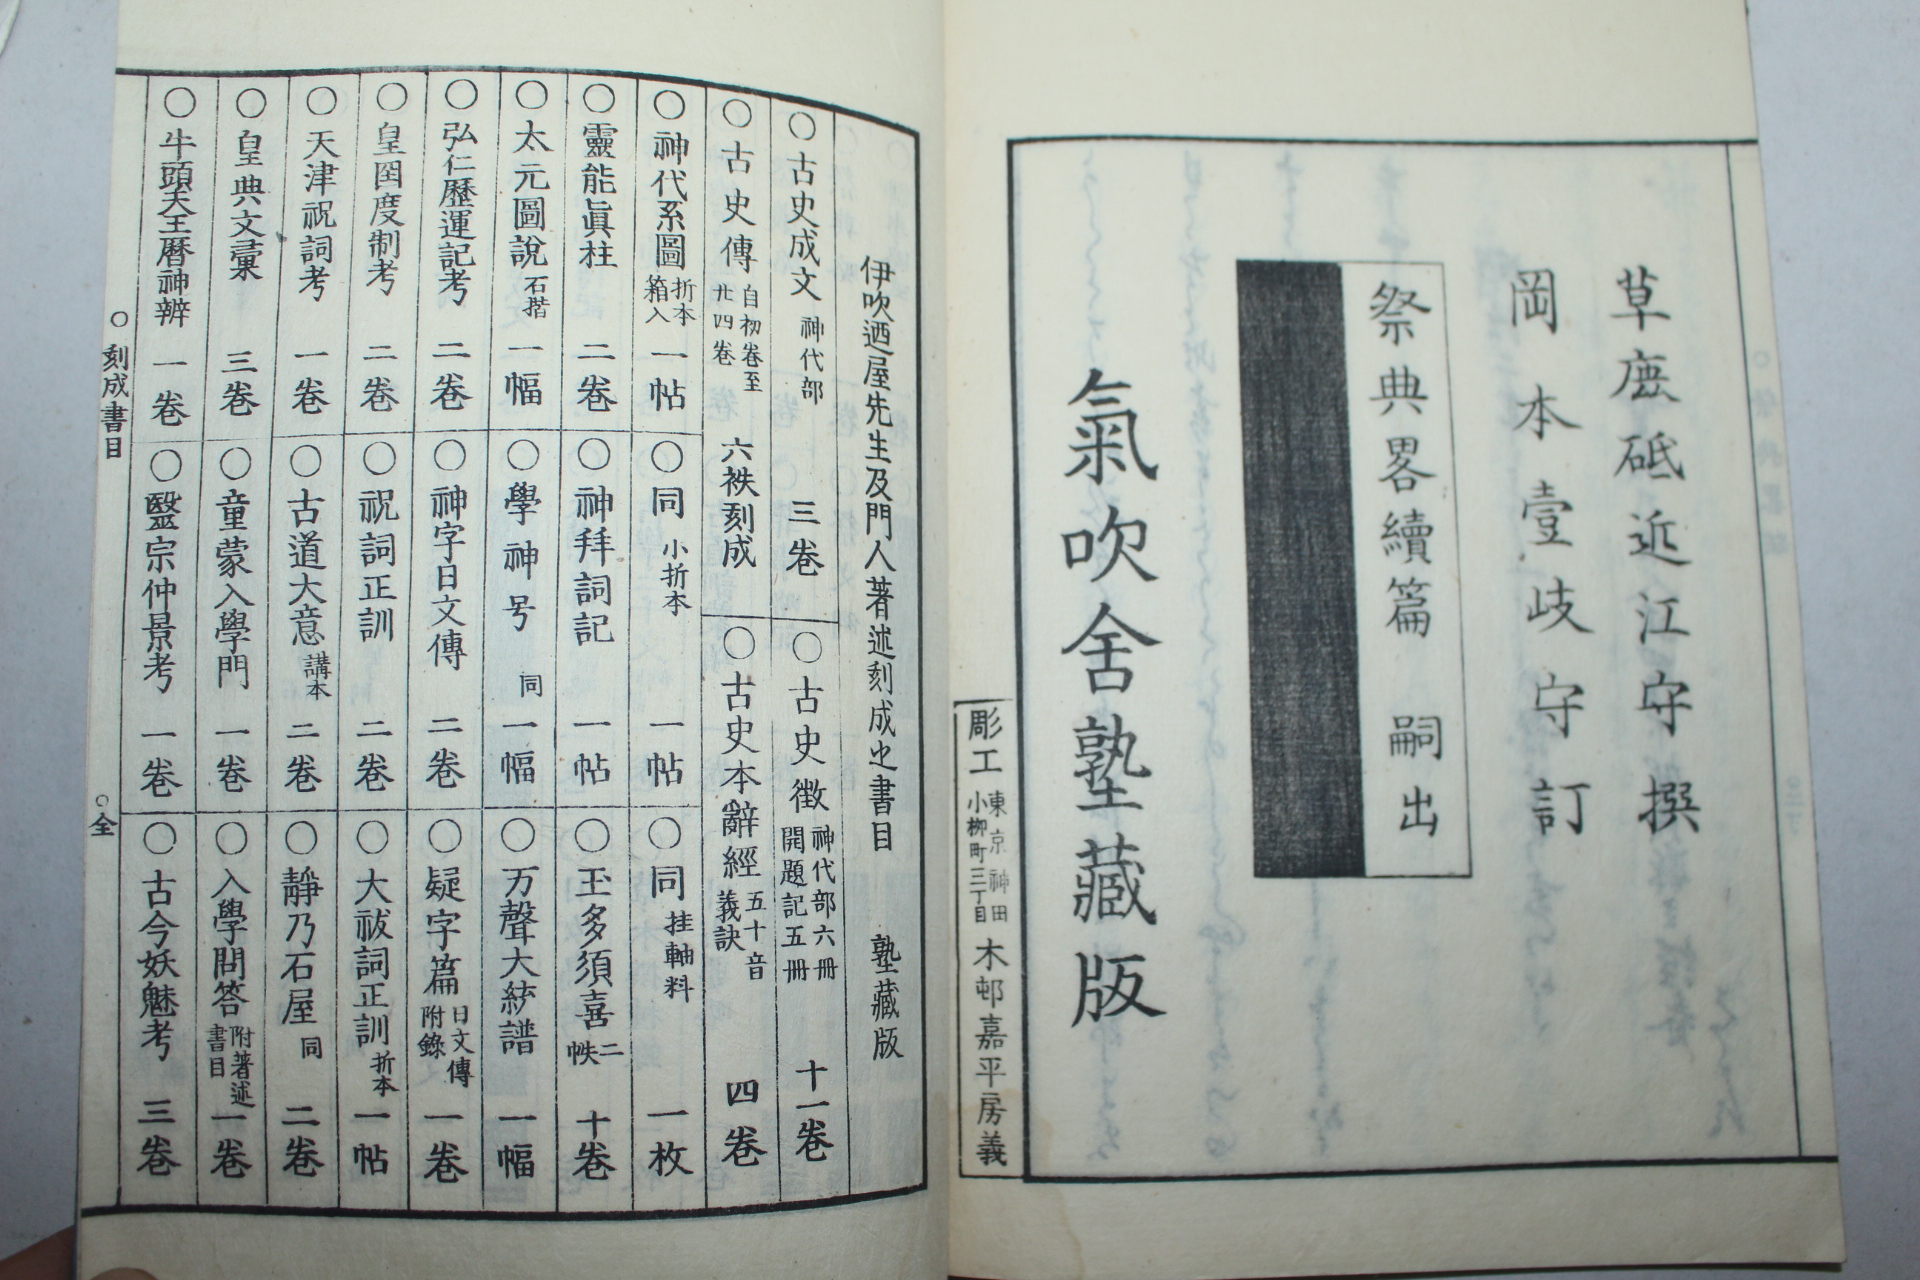 草鹿砥近江守撰
岡本壹岐守訂
祭典畧續篇 嗣出
氣吹舍塾藏版
彫工 東京神田小柳町三丁目 木邨嘉平房義
伊吹迺屋先生及門人著述刻成之書目 塾藏版
○古史成文 神代部 三卷
○古史徴 神代部六冊 開題記五冊 十一卷
○古史傳 自初卷至廿四卷 六袟刻成
○古史本辭經 五十音義訣 四卷
○神代系圖 折本箱入 一帖
○同 小折本 一帖
○同 挂軸料 一枚
○靈能眞柱 二卷
○神拜詞記 一帖
○玉多須喜 二帙 十卷
○太元圖說 石摺 一幅
○學神号 同 一幅
○万聲大統譜 一幅
○弘仁歷運記考 二卷
○神字日文傳 二卷
○疑字篇 日文傳附錄 一卷
○皇國度制考 二卷
○祝詞正訓 二卷
○大祓詞正訓 折本 一帖
○天津祝詞考 一卷
○古道大意 講本 二卷
○靜乃石屋 同 二卷
○皇典文彙 三卷
○童蒙入學門 一卷
○入學問答 附著述書目 一卷
○牛頭天王曆神辨 一卷
○醫宗仲景考 一卷
○古今妖魅考 三卷
○刻成書目 ○全